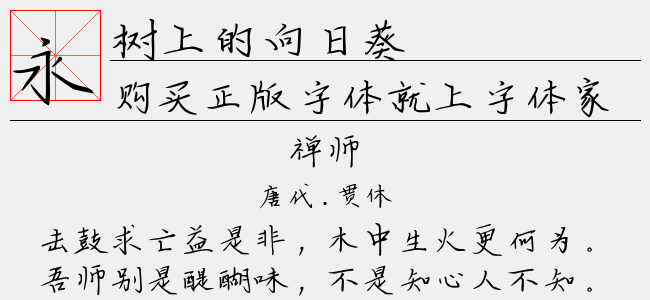 永
树上的向日葵
购买正版字体就上字体家
禅师
唐代.贯休
去鼓求亡益是非，木中生火更何为。
吾师别是醍醐味，不是知心人不知。